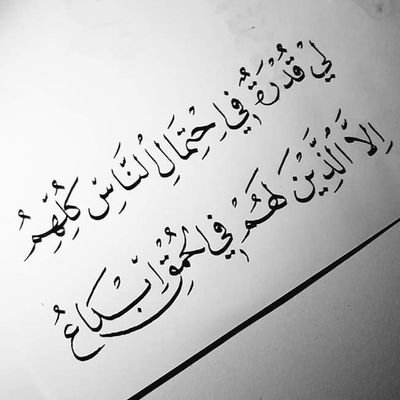 لِيْ قُدْرَةٌ فِي احْتِمَالِ النَّاسِ كُلِّهِمُ
اِلاَّ الَّذِيْنَ لَهُمْ فِي الحُمْقِ اِبْدَاعُ